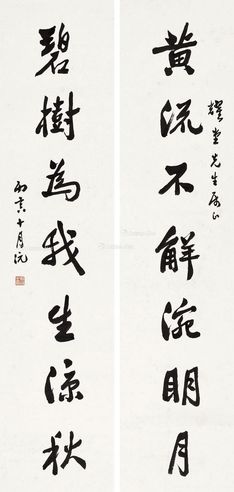 黄流不解涴明月
耀堂先生属正
碧樹為我生涼秋
丙寅十月沅